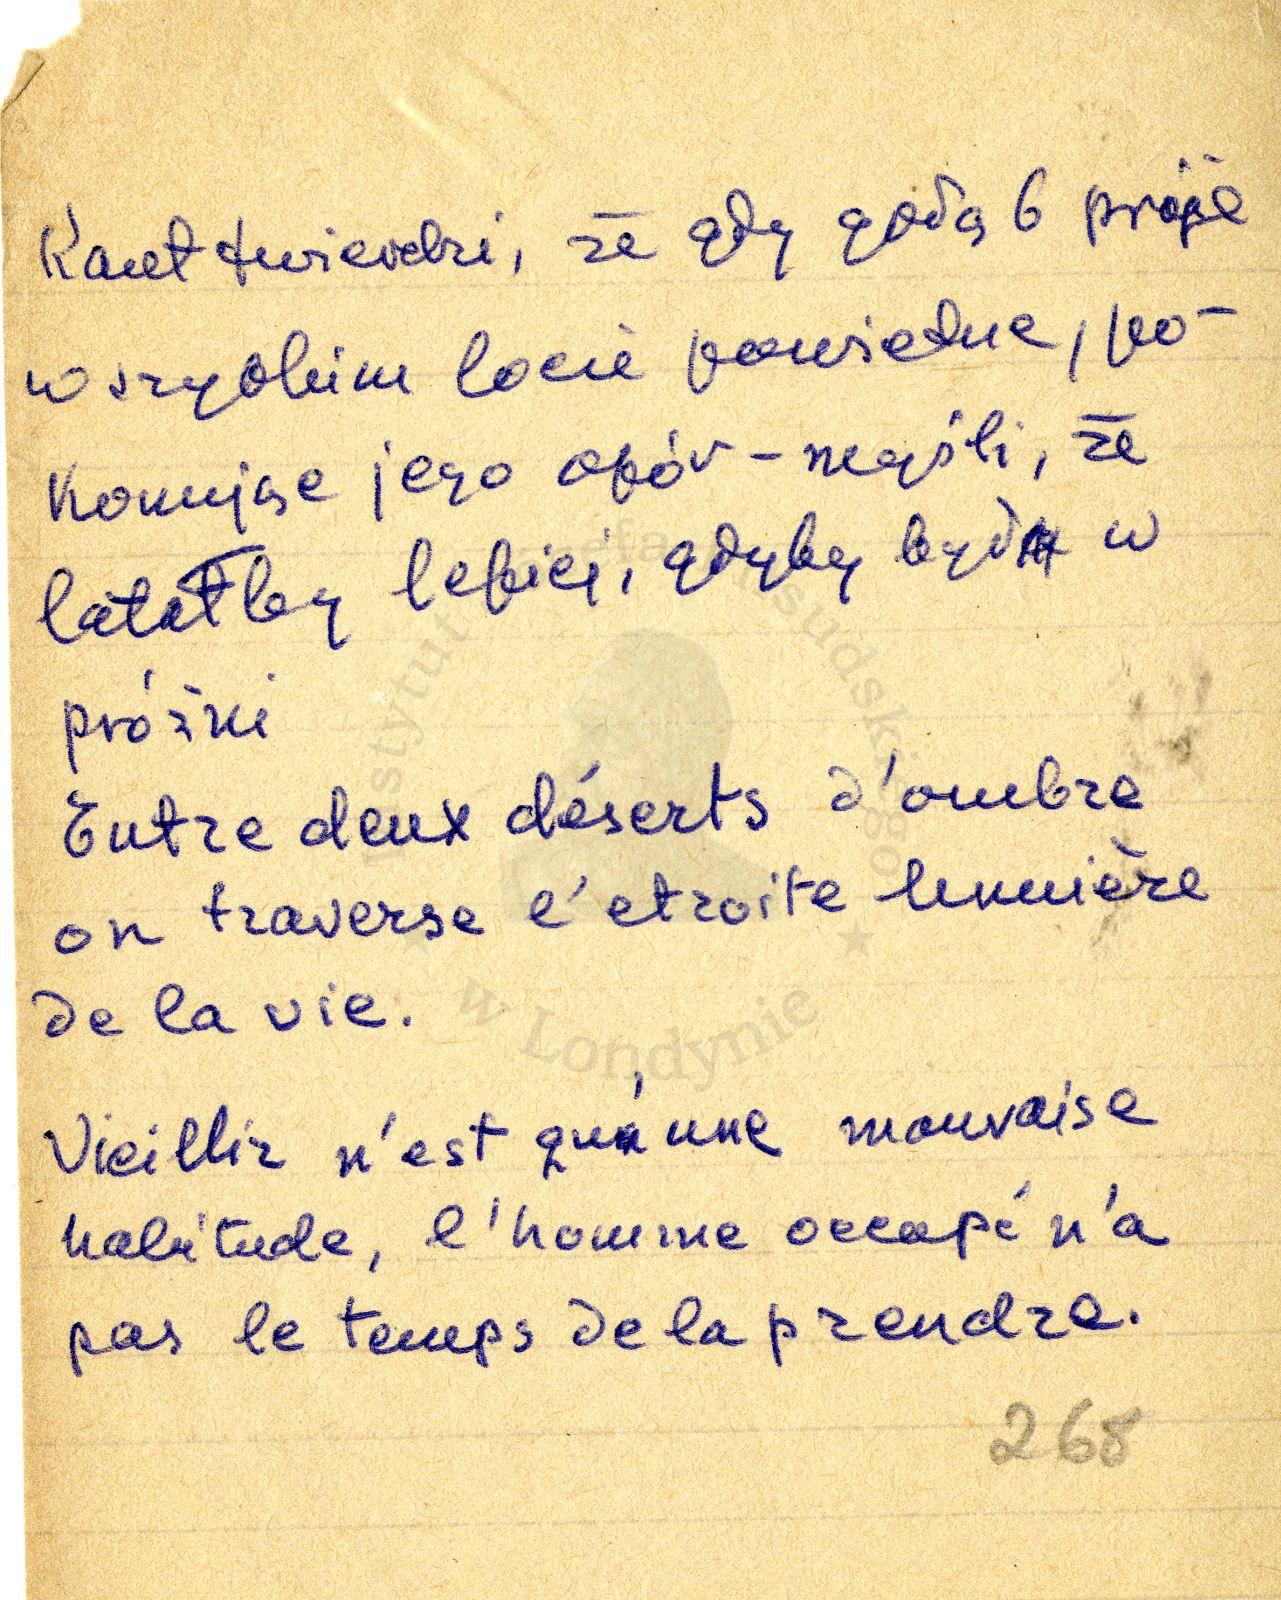 Kant twierdzi, że gdy gołąb pruje
w szybkim locie powietrze, po-
konując jego opór - myśli, że
latałby lepiej, gdyby był w
próżni
Entre deux déserts d'ombre
on traverse l'etroite lumière
de la vie.
Vieillir n'est qu'une mauvaise
habitude, l'homme occupé n'a
pas le temps de la prendre.
268
Instytut Józefa Piłsudskiego
w Londynie